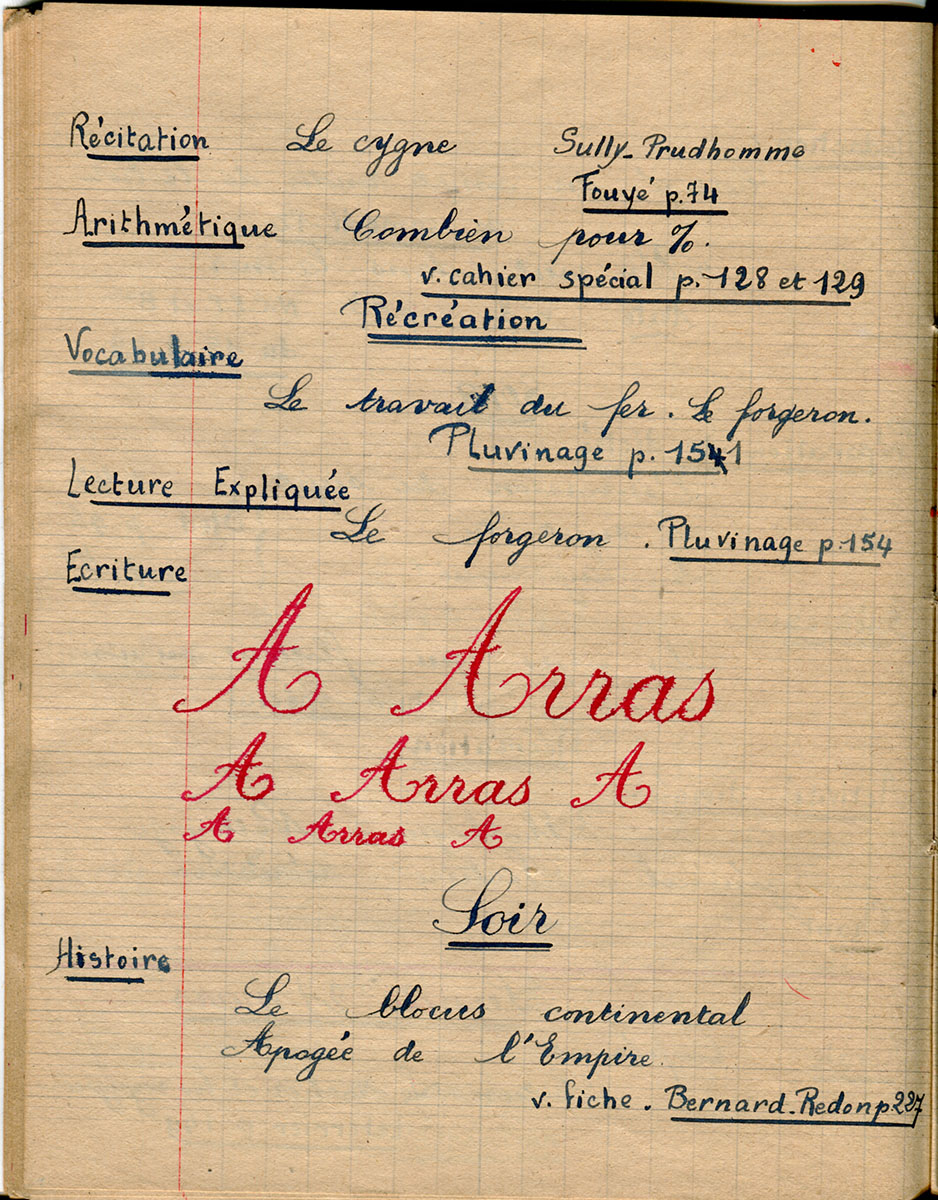 Récitation Le cygne Sully-Prudhomme
Fouyé p.74
Arithmétique Combien pour %.
v. cahier spécial p. 128 et 129
Récréation
Vocabulaire
Le travail du fer. Le forgeron.
Pluvinage p. 151
Lecture Expliquée
Le forgeron. Pluvinage p. 154
Ecriture
A Arras
A Arras A
A Arras A
Soir
Histoire
Le blocus continental
Apogée de l'Empire.
v. fiche. Bernard-Redon p 227